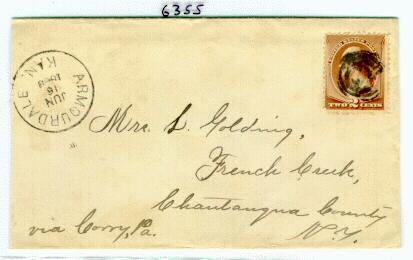 6355
ARMOURDALE
KAN.
JUN
16
1883
UNITED STATES POSTAGE
TWO 2 CENTS
Mrs. L. Golding,
French Creek,
Chautauqua County
N.Y.
via Corry, Pa.